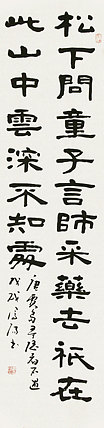 松下問童子言師采藥去祇在
此山中雲深不知處
唐賈島尋隱者不遇
戊戌